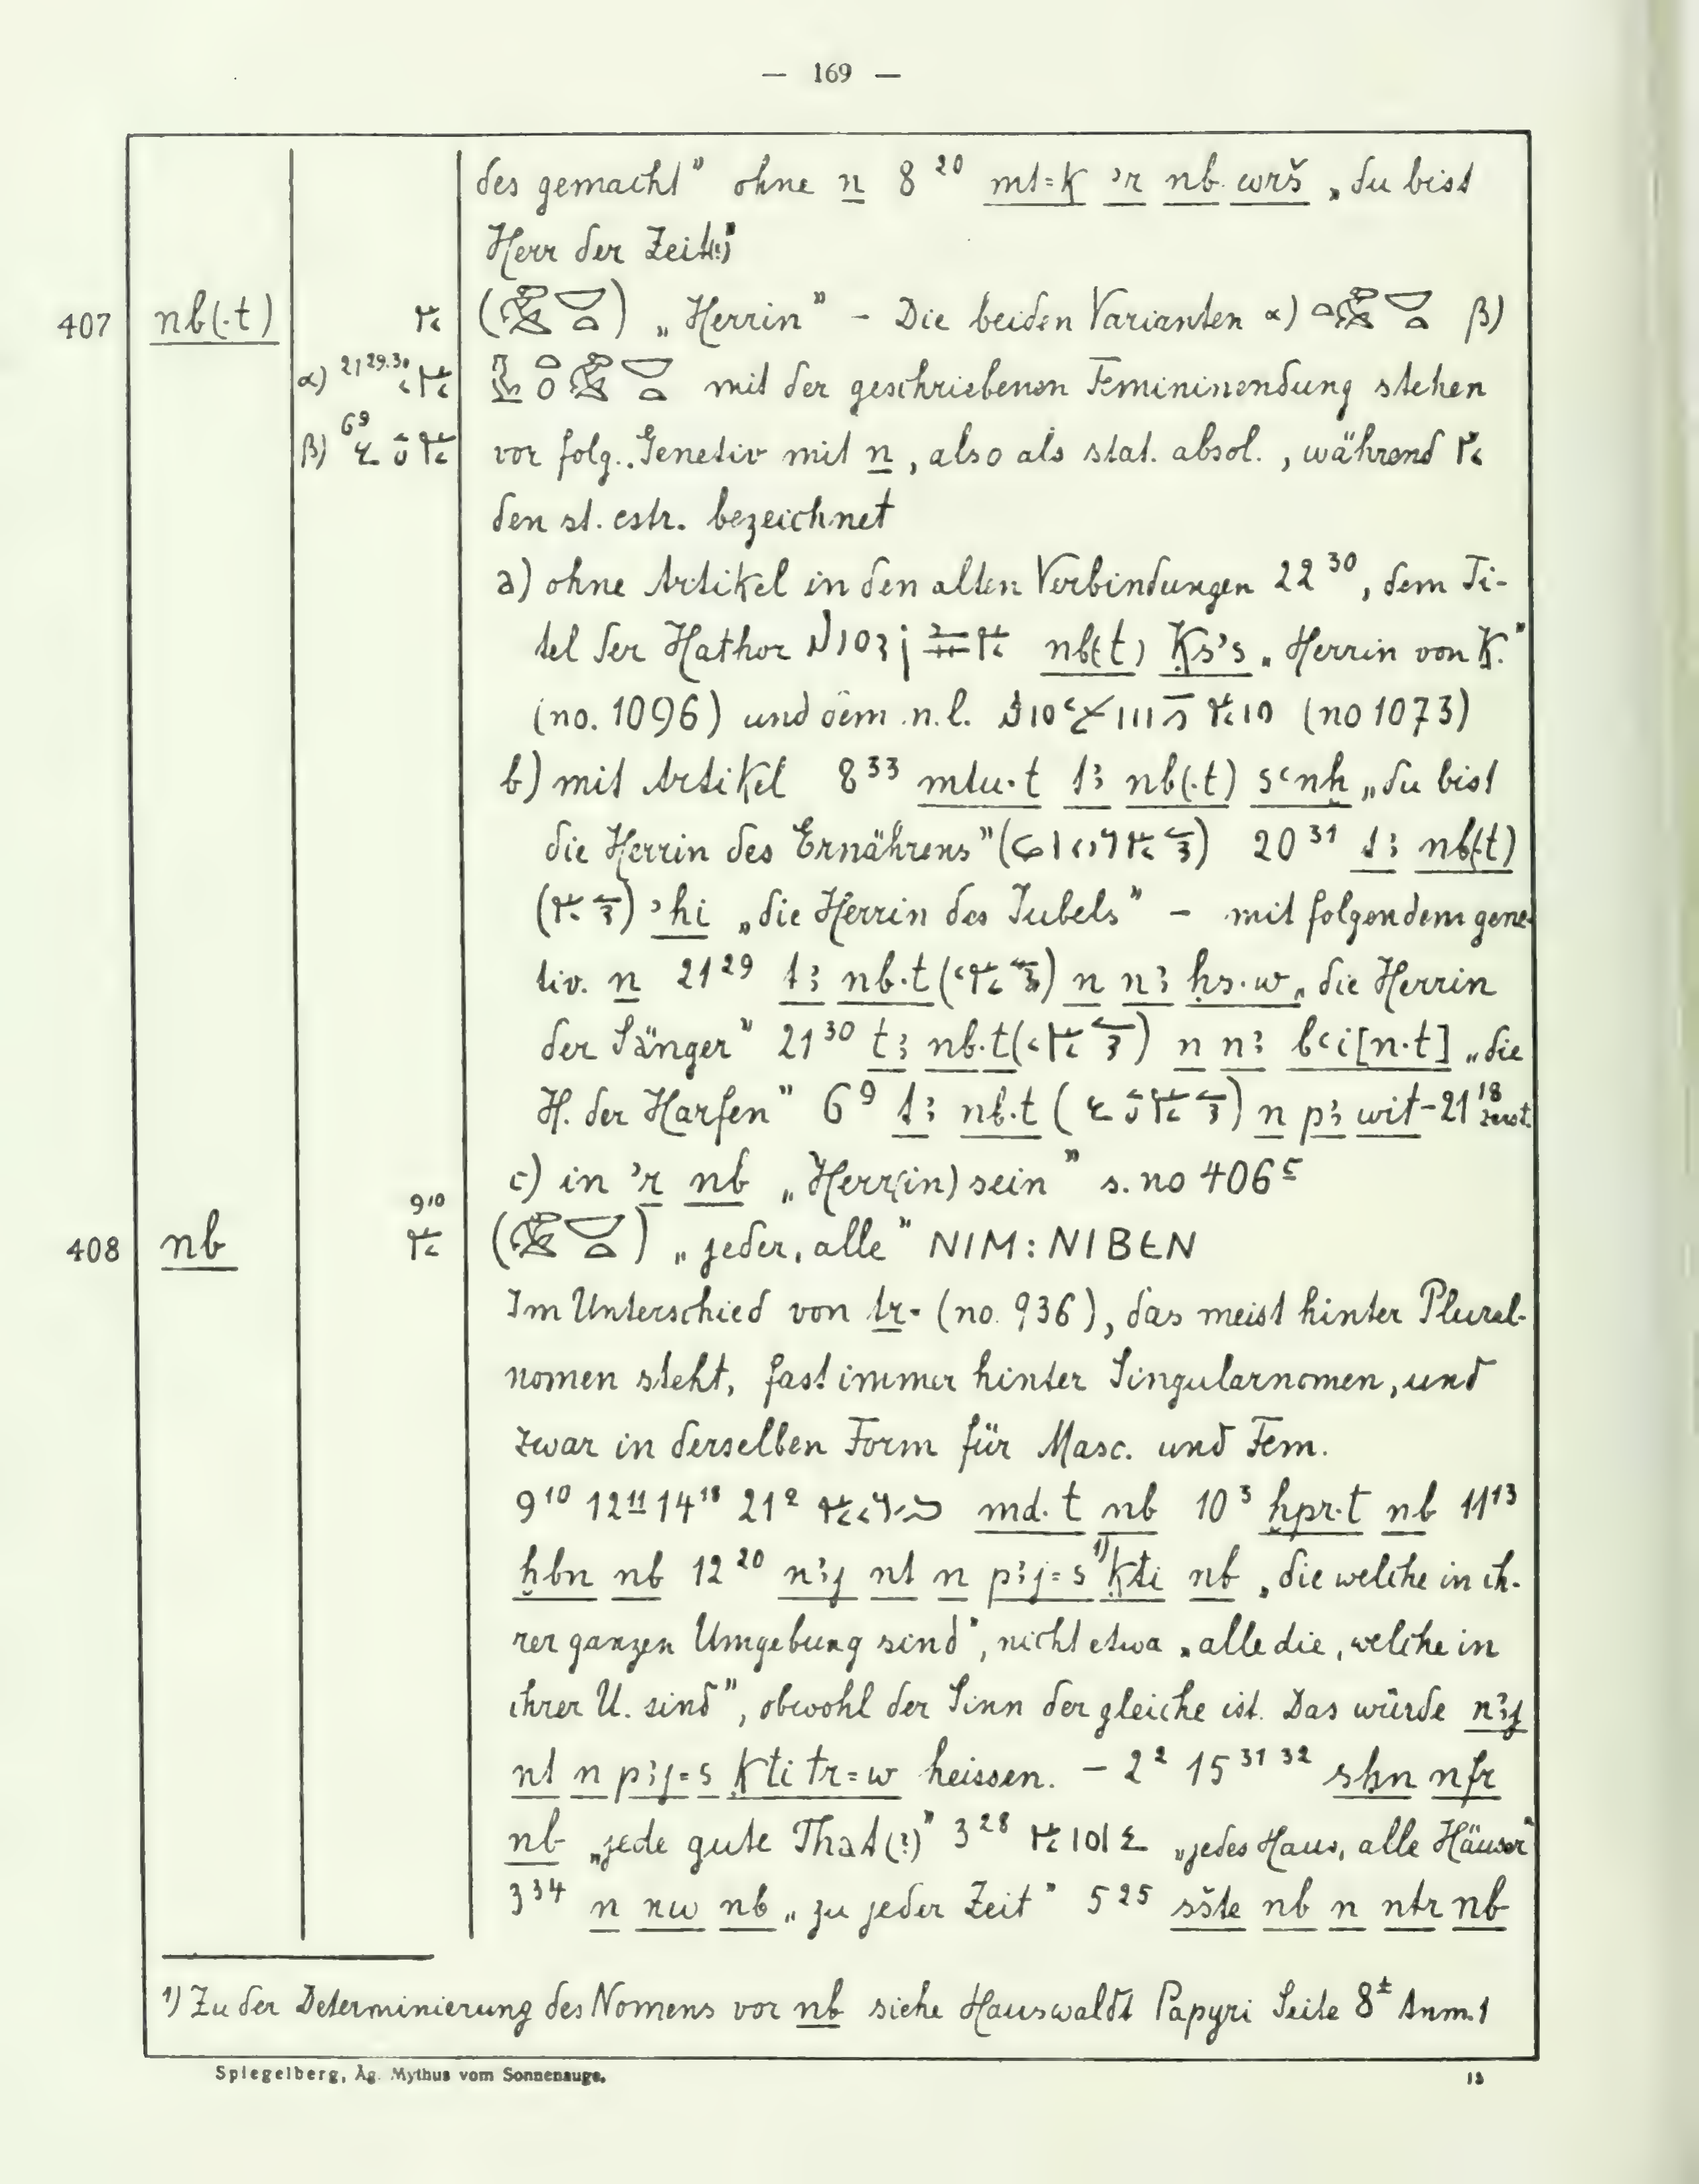 — 169 —
des gemacht" ohne n 8 20 mt=k ꜥr nb wrš „du bist
Herr der Zeit(?)"
407 nb(.t) ( ) „Herrin" – Die beiden Varianten α) β)
α) 21 29.30 mit der geschriebenen Femininendung stehen
β) 6 9 vor folg. Genetiv mit n, also als stat. absol., während
den st. cstr. bezeichnet
a) ohne Artikel in den alten Verbindungen 22 30, dem Ti-
tel der Hathor nb(t) Ḳs's „Herrin von Ḳ."
(no. 1096) und dem n.l. (no 1073)
b) mit Artikel 8 33 mtu.t tꜣ nb(.t) sꜥnḫ „du bist
die Herrin des Ernährens" ( ) 20 31 tꜣ nb(.t)
( ) ꜥhi „die Herrin des Jubels" – mit folgendem gene-
tiv. n 21 29 tꜣ nb.t ( ) n nꜣ ḥs.w „die Herrin
der Sänger" 21 30 tꜣ nb.t ( ) n nꜣ bꜥi[n.t] „die
H. der Harfen" 6 9 tꜣ nb.t ( ) n pꜣ wit – 21 18 zerst.
c) in ꜥr nb „Herr(in) sein" s. no 406 c
9 10
408 nb ( ) „jeder, alle" ΝΙΜ : ΝΙΒΕΝ
Im Unterschied von tr- (no. 936), das meist hinter Plural-
nomen steht, fast immer hinter Singularnomen, und
zwar in derselben Form für Masc. und Fem.
9 10 12 11 14 18 21 2 md.t nb 10 3 ḫpr.t nb 11 13
ḫbn nb 12 20 nꜣj nt n pꜣj=s 1) ḳti nb „die welche in ih-
rer ganzen Umgebung sind", nicht etwa „alle die, welche in
ihrer U. sind", obwohl der Sinn der gleiche ist. Das würde nꜣj
nt n pꜣj=s ḳti tr=w heissen. – 2 2 15 31 32 sḥn nfr
nb „jede gute That(?)" 3 28 „jedes Haus, alle Häuser"
3 34 n nw nb „zu jeder Zeit" 5 25 sšte nb n ntr nb
1) Zu der Determinierung des Nomens vor nb siehe Hauswaldt Papyri Seite 8 Anm. 1
Spiegelberg, Äg. Mythus vom Sonnenauge.